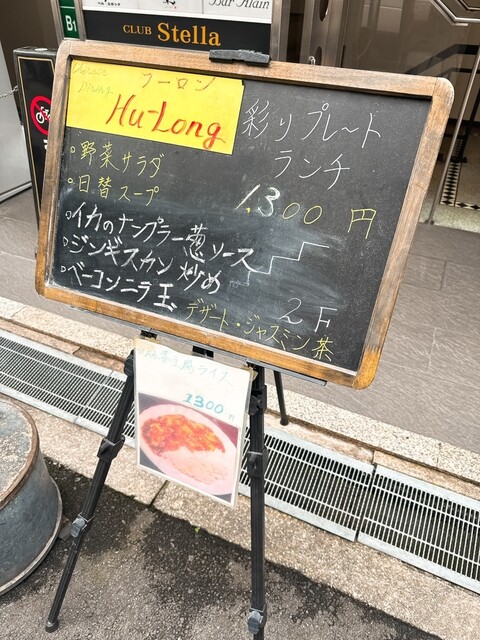 Bar Alain
B1
CLUB Stella
DINING
フーロン
Hu-Long
彩りプレート
ランチ
1,300円
○野菜サラダ
○日替スープ
○イカのナンプラー葱ソース
○ジンギスカン炒め
○ベーコンニラ玉
デザート・ジャスミン茶
2F
麻婆豆腐ライス
1300円